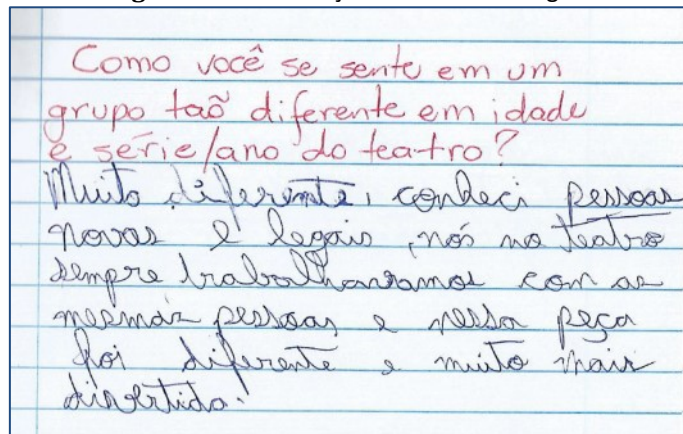 Como você se sente em um
grupo taõ diferente em idade
e série/ano do teatro?
Muito diferente, conheci pessoas
novas e legais, nós no teatro
sempre trabalhavamos com as
mesmas pessoas e nessa peça
foi diferente e muito mais
divertida.